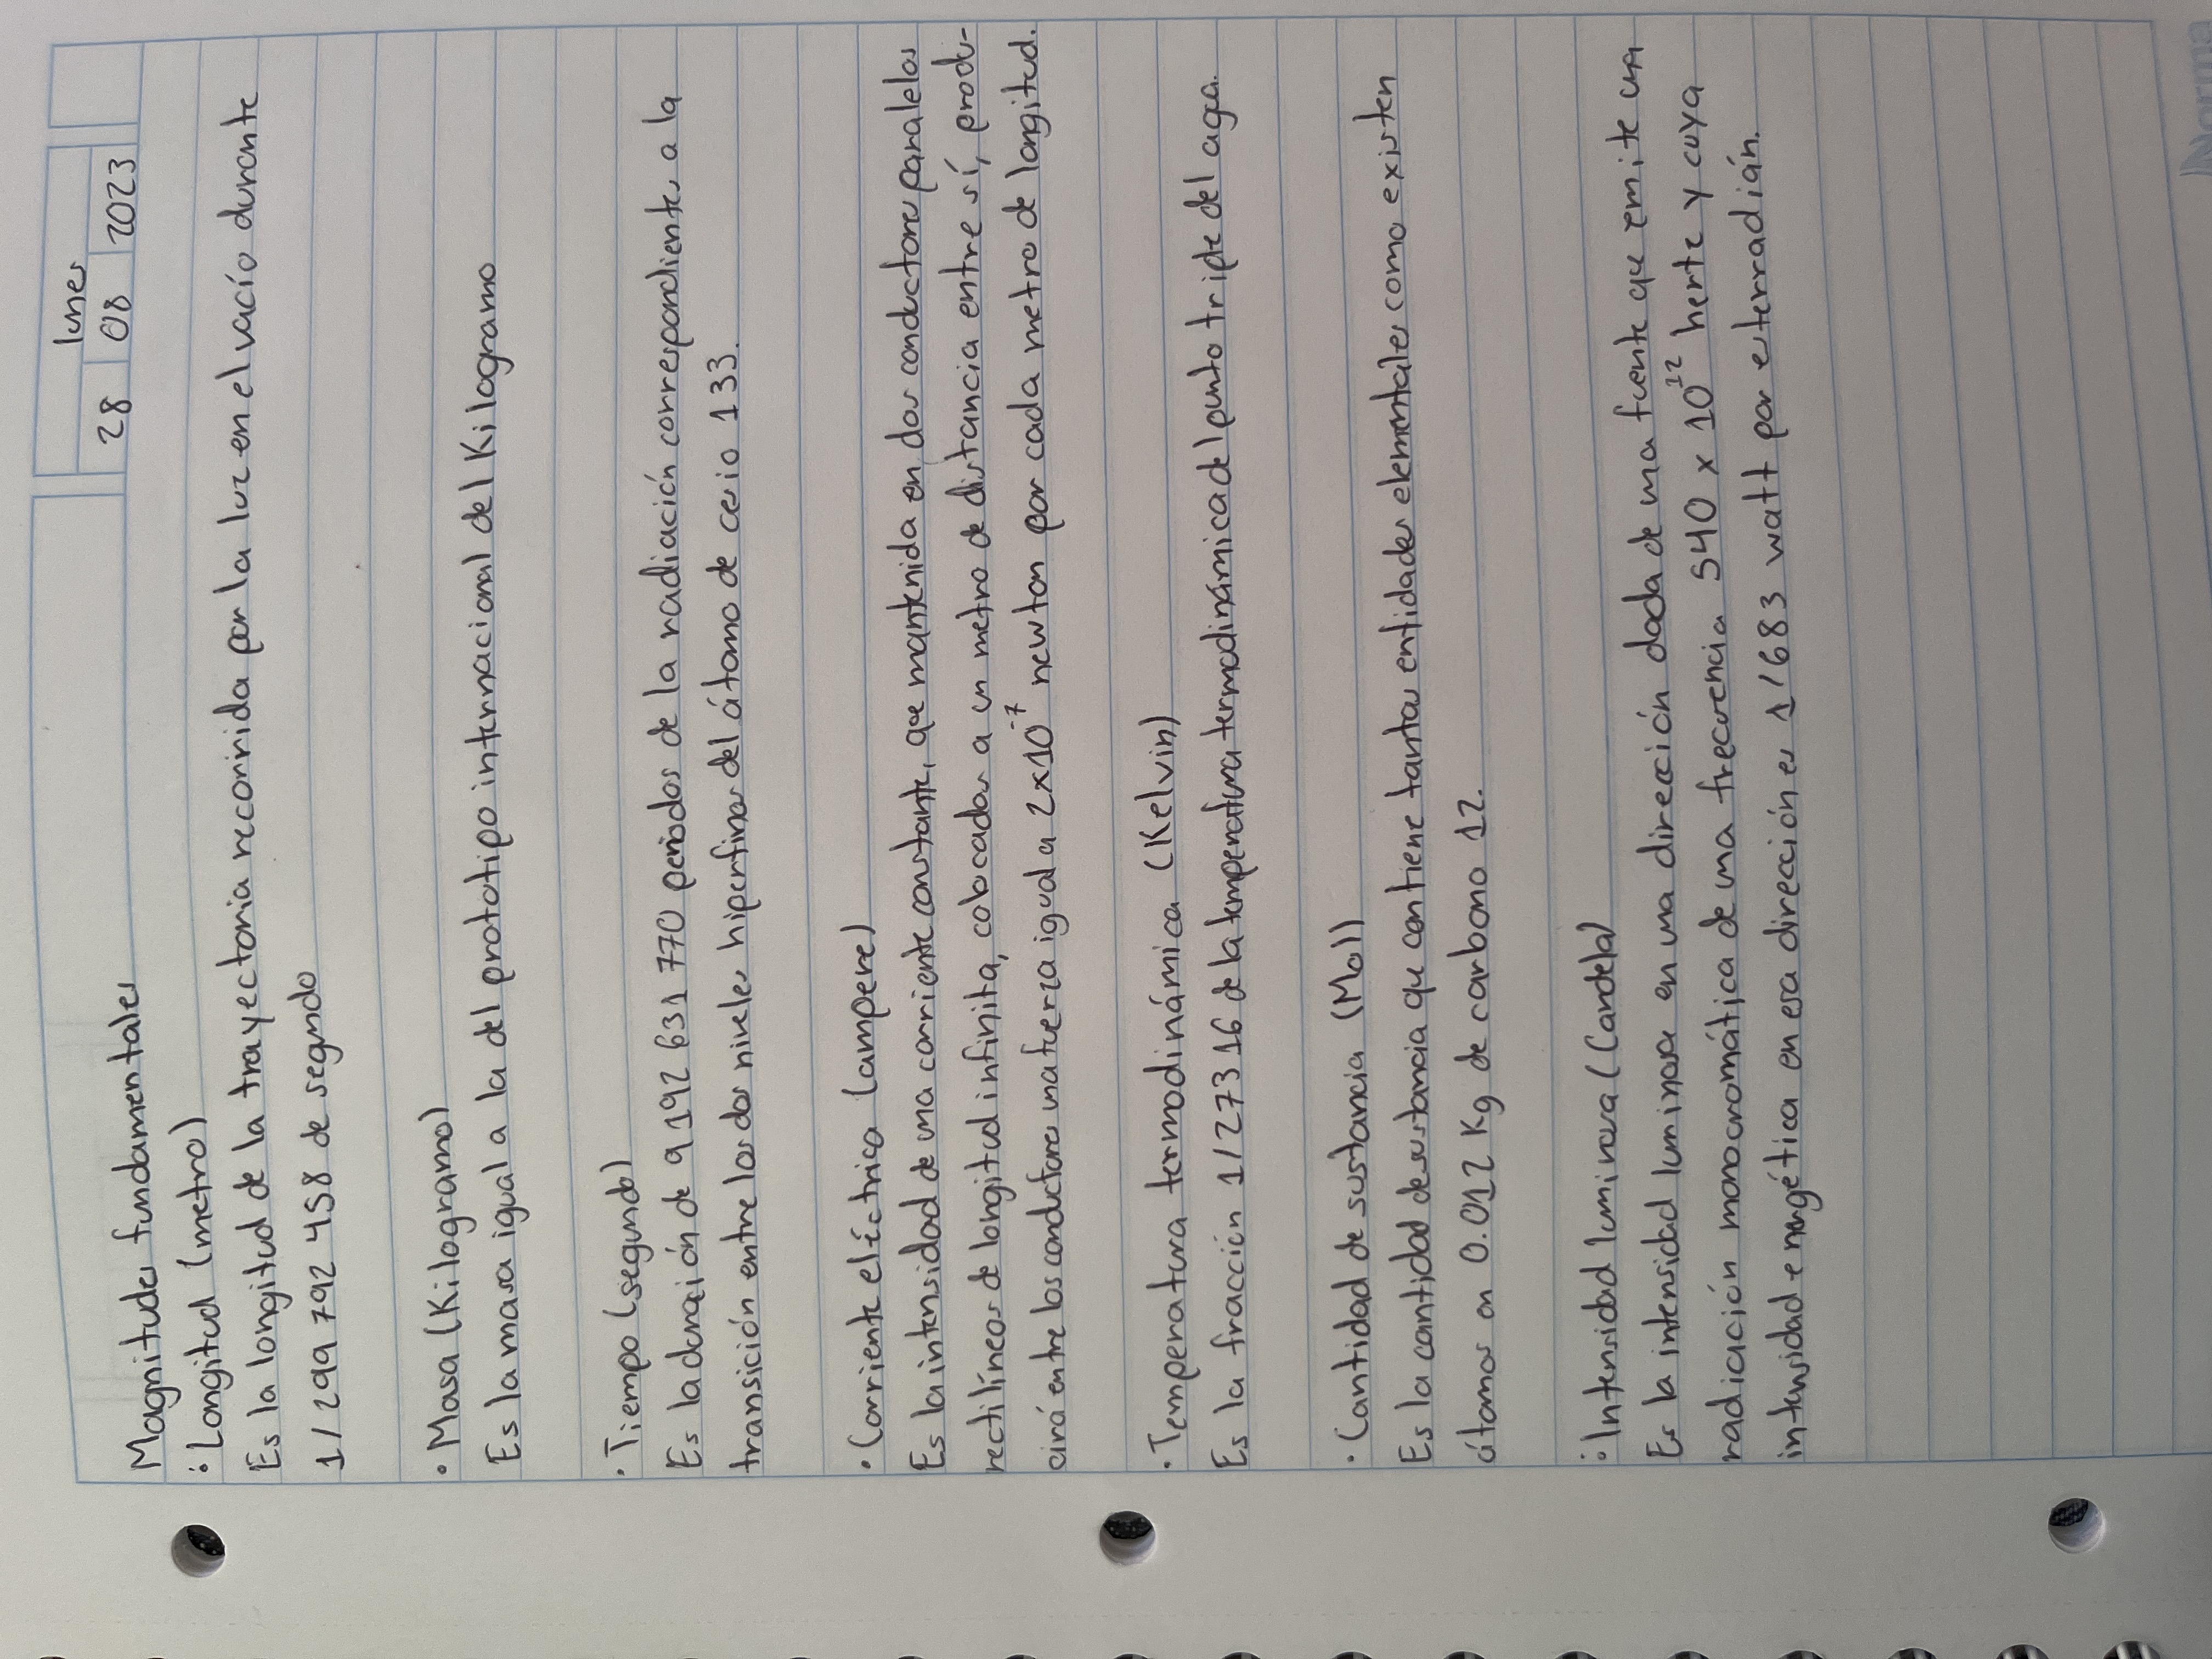 lunes
28 08 2023
Magnitudes fundamentales
: Longitud (metro)
Es la longitud de la trayectoria recorrida por la luz en el vacío durante
1/299 792 458 de segundo
· Masa (Kilogramo)
Es la masa igual a la del prototipo internacional del Kilogramo
· Tiempo (segundo)
Es la duración de 9 192 631 770 periodos de la radiación correspondientes a la
transición entre los dos niveles hiperfinos del átomo de cesio 133.
· Corriente eléctrica (ampere)
Es la intensidad de una corriente constante, que mantenida en dos conductores paralelos
rectilíneos de longitud infinita, colocados a un metro de distancia entre sí, produ-
cirá entre los conductores una fuerza igual a 2x10⁻⁷ newton por cada metro de longitud.
· Temperatura termodinámica (Kelvin)
Es la fracción 1/273 16 de la temperatura termodinámica del punto triple del agua.
· Cantidad de sustancia (Mol)
Es la cantidad de sustancia que contiene tantas entidades elementales como existen
átomos en 0.012 Kg de carbono 12.
: Intensidad luminosa (Candela)
Es la intensidad luminosa en una dirección dada de una fuente que emite una
radiación monocromática de una frecuencia 540 x 10¹² hertz y cuya
intensidad energética en esa dirección es 1/683 watt por esterradián.
Norma